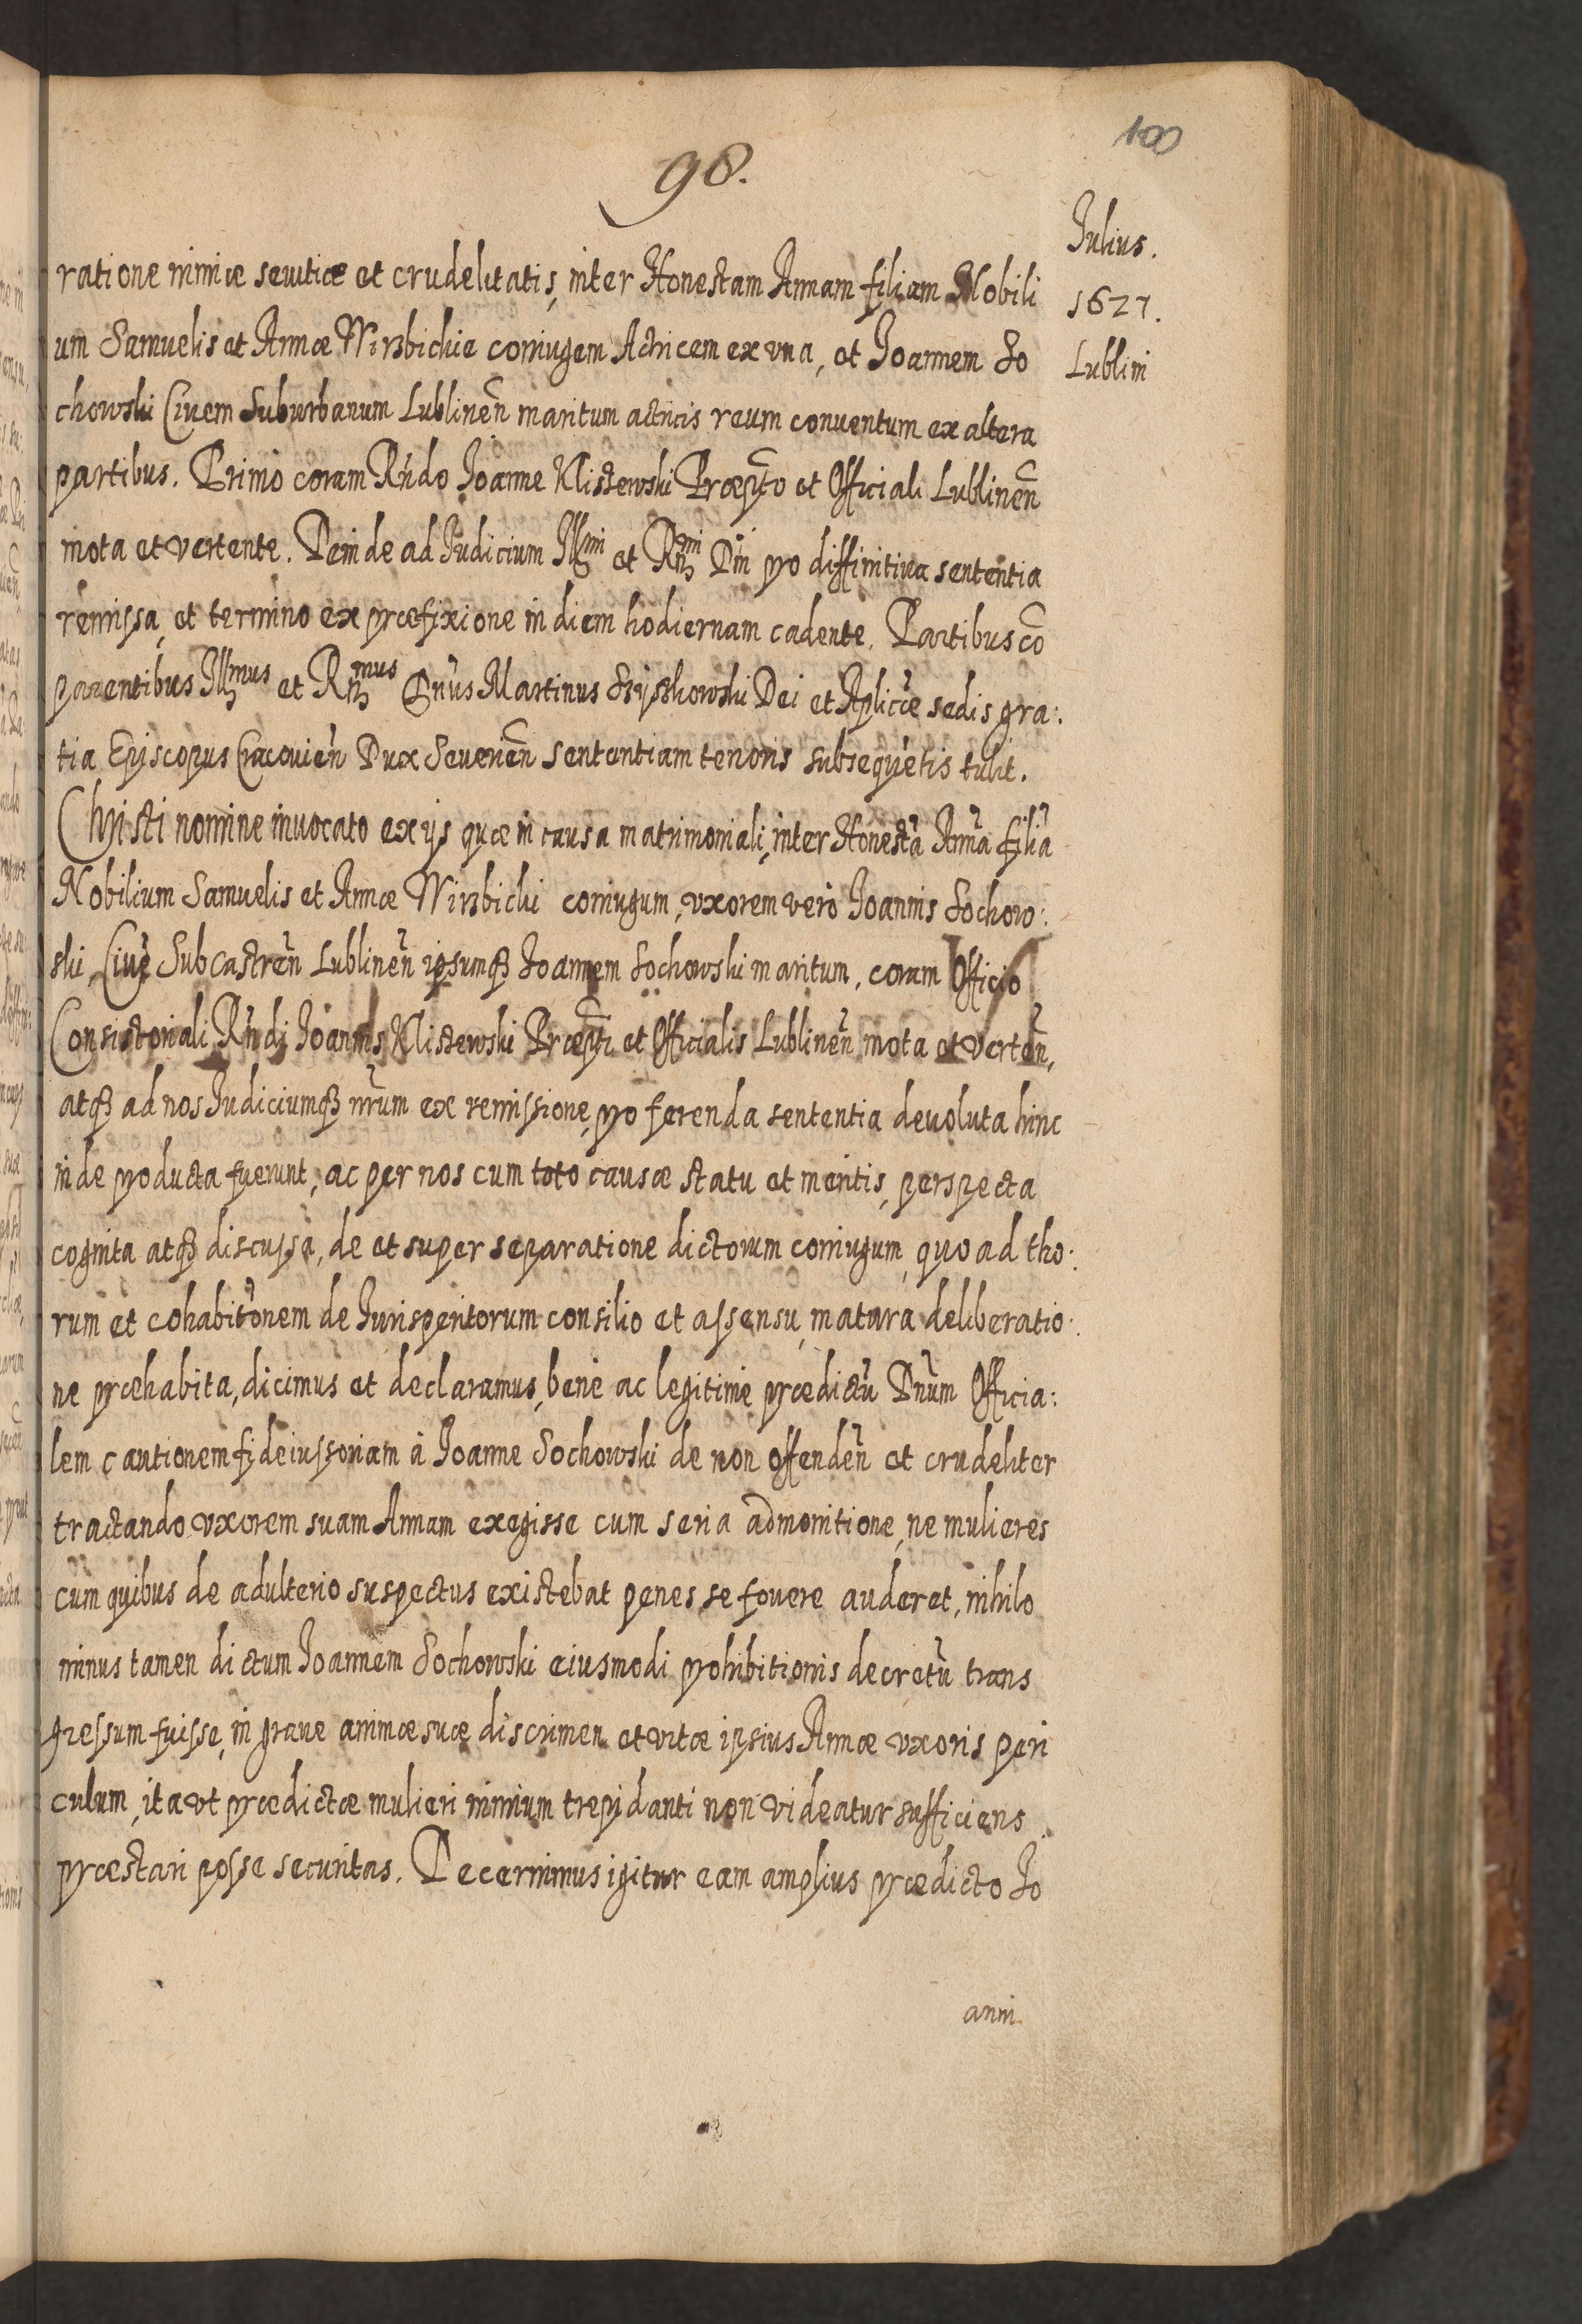 100
98.
Julius.
1627.
Lublini
ratione nimiæ sevitiæ et crudelitatis, inter Honestam Annam filiam Nobili
um Samuelis et Annæ Wirzbickie coniugem Actricem ex vna, et Joannem So
chowski Civem Suburbanum Lublineñ maritum actricis reum conventum ex altera
partibus. Primò coram Rñdo Joanne Klistewski Præpto et Officiali Lublineñ
mota et vertente. Deinde ad Judicium Illmi et Rmi Dñi pro diffinitiva sententia
remissa, et termino ex præfixione in diem hodiernam cadente. Partibus cõ
parentibus Illmus et Rmus Dñus Martinus Szyszkowski Dei et Aplicæ sedis gra:
tia Episcopus Cracovieñ Dux Severieñ sententiam tenoris subsequẽtis tulit.
Christi nomine invocato ex ijs quæ in causa matrimoniali, inter Honestã Annã filiã
Nobilium Samuelis et Annæ Wirzbicki coniugum, vxorem verò Joannis Sochow:
ski, Ciuẽ Subcastreñ Lublineñ ipsumqz Joannem Sochowski maritum, coram Officio
Consistoriali Rñdi Joannis Klistewski Præpti et Officialis Lublineñ mota et verteñ,
atqz ad nos Judiciumqz nrũm ex remissione, pro ferenda sententia devoluta hinc
inde producta fuerunt, ac per nos cum toto causæ statu et meritis, perspecta
cognita atqz discussa, de et super separatione dictorum coniugum, quo ad tho:
rum et cohabitõnem de Jurisperitorum consilio et assensu, matura deliberatio:
ne præhabita, dicimus et declaramus, benè ac legitimè prædictũ Dñum Officia:
lem cautionem fideiussoriam à Joanne Sochowski de non offendeñ et crudeliter
tractando vxorem suam Annam exegisse cum seria admonitione, ne mulieres
cum quibus de adulterio suspectus existebat penes se fovere auderet, nihilo
minus tamen dictum Joannem Sochowski eiusmodi prohibitionis decretũ trans
gressum fuisse, in grave animæ suæ discrimen et vitæ ipsius Annæ vxoris peri
culum, ita vt prædictæ mulieri nimium trepidanti non videatur sufficiens
præstari posse securitas. Decernimus igitur eam amplius prædicto Jo
anni